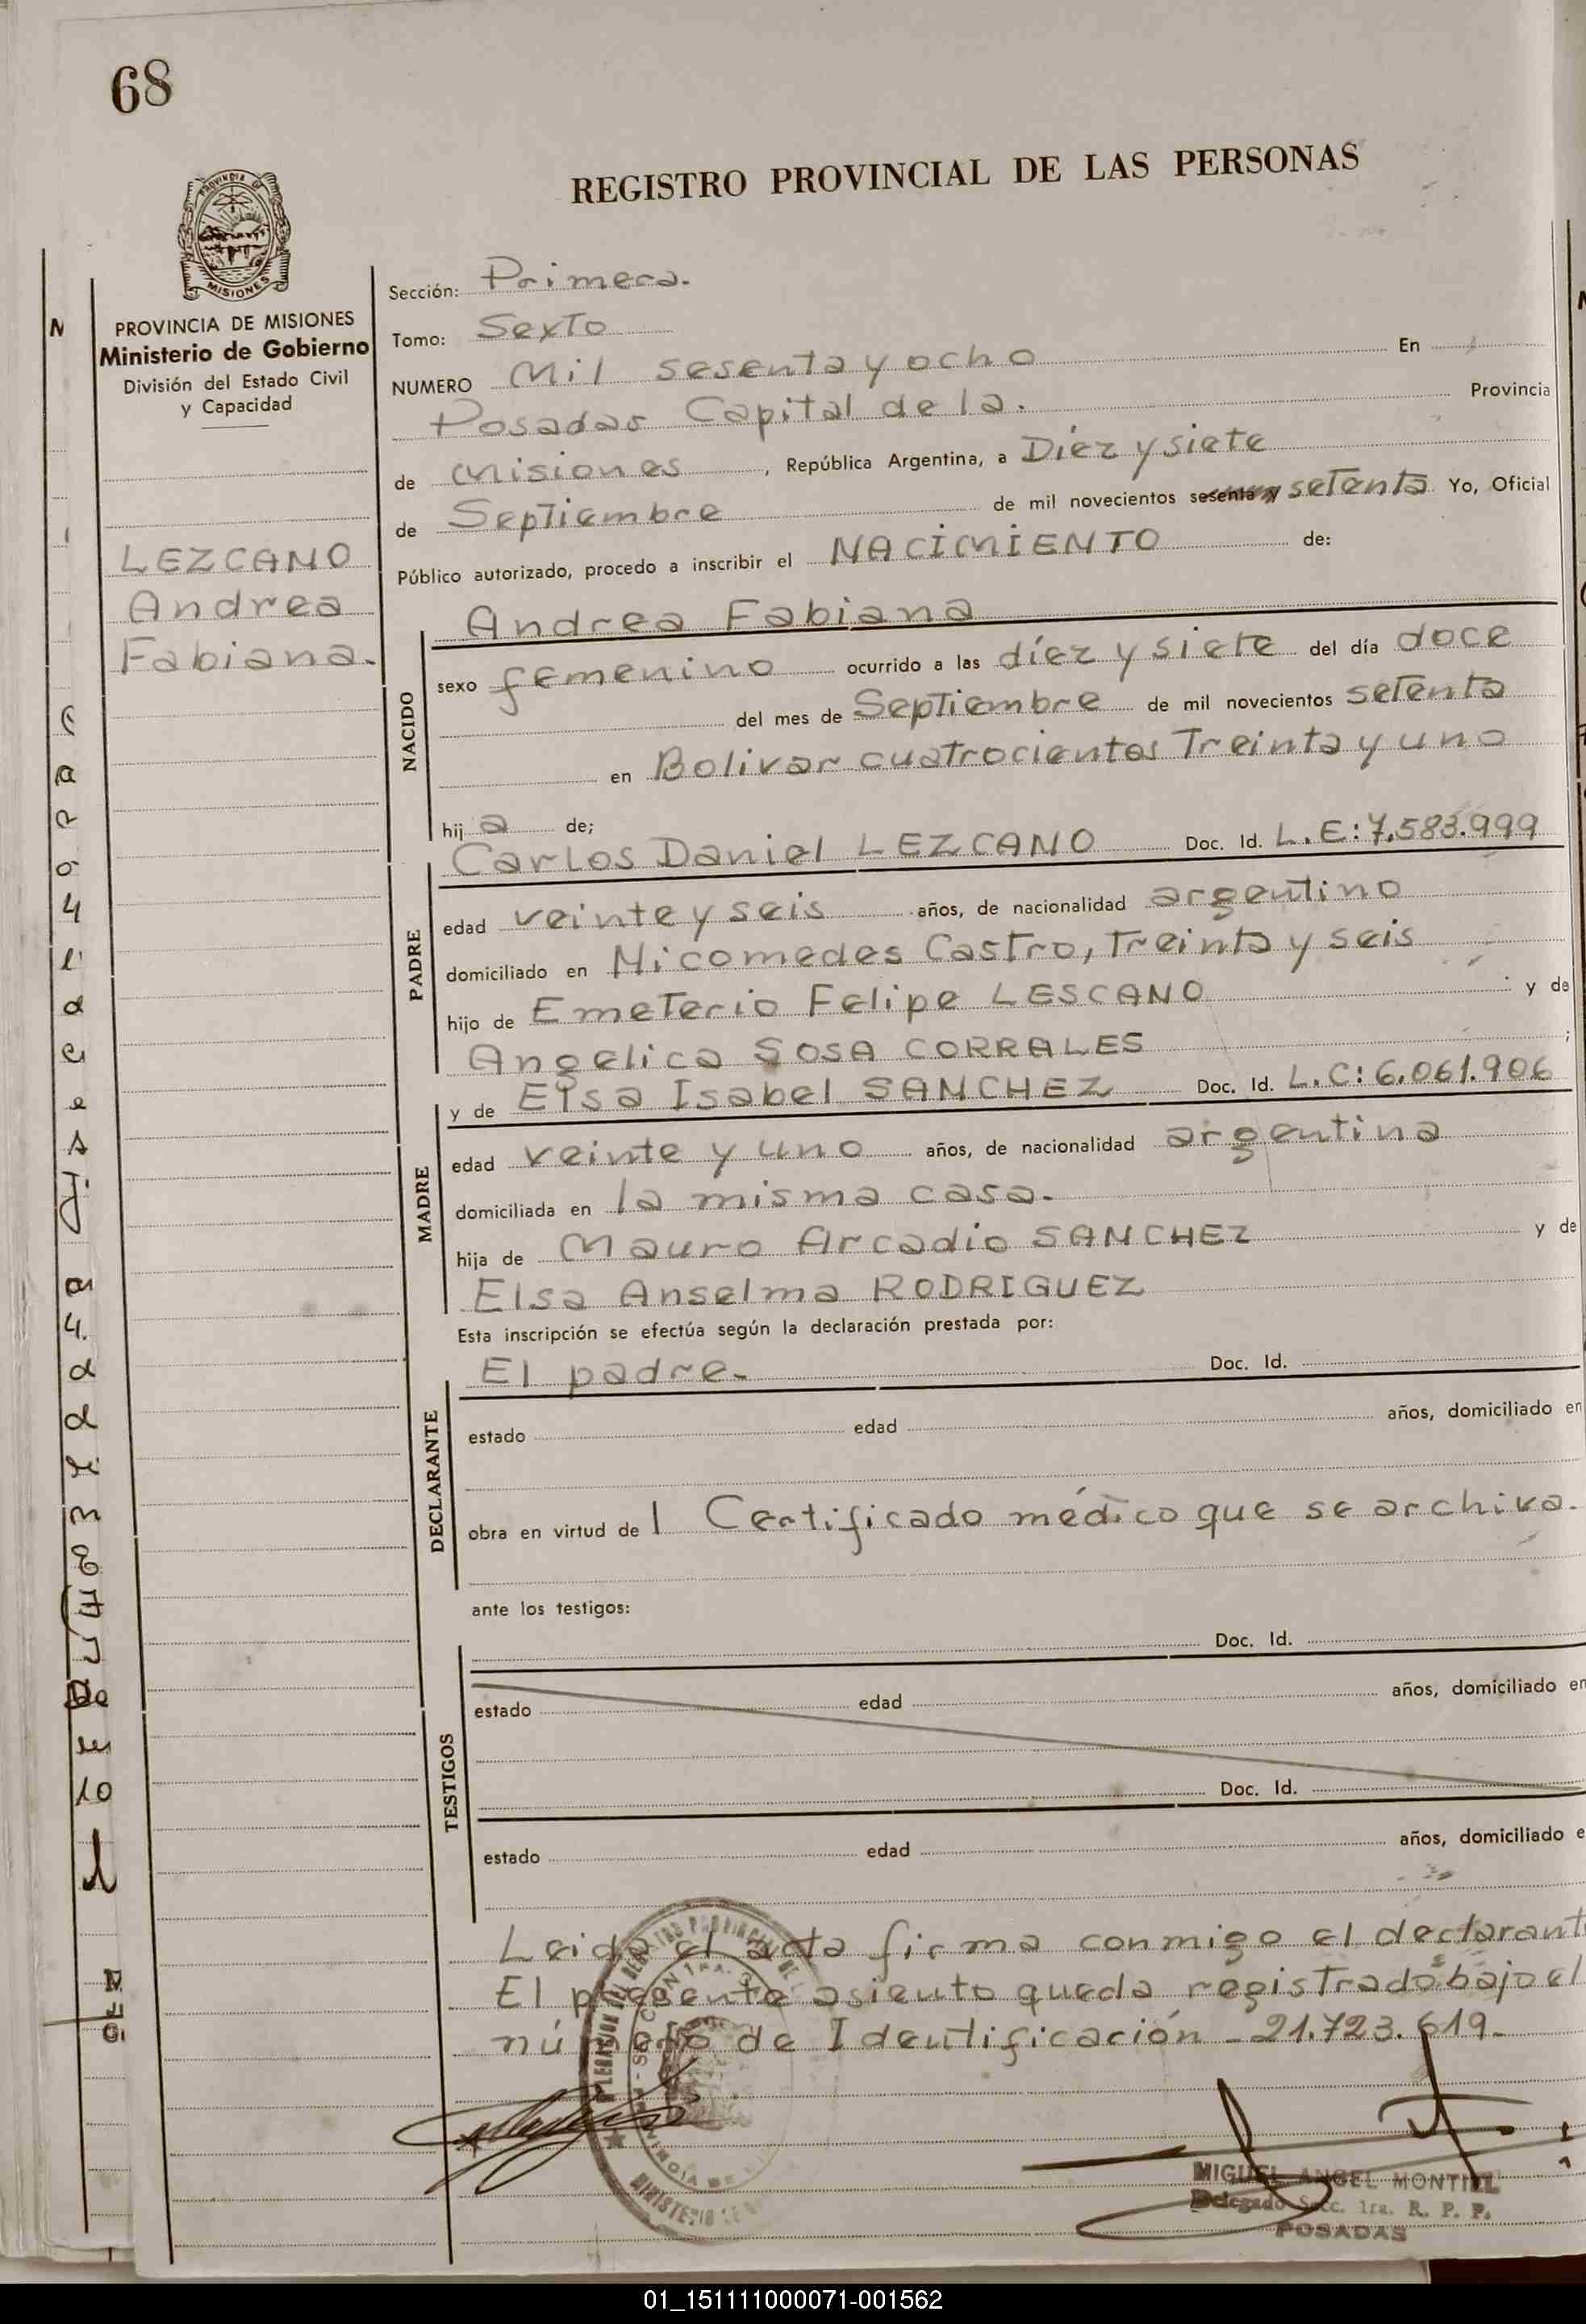 68
REGISTRO PROVINCIAL DE LAS PERSONAS
PROVINCIA DE MISIONES
Ministerio de Gobierno
División del Estado Civil
y Capacidad
LEZCANO
Andrea
Fabiana.
Sección: Primera.
Tomo: Sexto
NUMERO Mil sesenta y ocho En
Posadas Capital de la. Provincia
de Misiones, República Argentina, a Diez y siete
de Septiembre de mil novecientos sesenta y setenta Yo, Oficial
Público autorizado, procedo a inscribir el NACIMIENTO de:
NACIDO
Andrea Fabiana
sexo femenino ocurrido a las díez y siete del día doce
del mes de Septiembre de mil novecientos setenta
en Bolivar cuatrocientos Treinta y uno
hij a de;
PADRE
Carlos Daniel LEZCANO Doc. Id. L.E: 7.583.999
edad veinte y seis años, de nacionalidad argentino
domiciliado en Nicomedes Castro, Treinta y seis
hijo de Emeterio Felipe LESCANO y de
Angelica SOSA CORRALES ;
MADRE
y de Elsa Isabel SANCHEZ Doc. Id. L.C: 6.061.906
edad veinte y uno años, de nacionalidad argentina
domiciliada en la misma casa.
hija de Mauro Arcadio SANCHEZ y de
Elsa Anselma RODRIGUEZ
Esta inscripción se efectúa según la declaración prestada por:
DECLARANTE
El padre. Doc. Id.
estado edad años, domiciliado en
obra en virtud de l Certificado médico que se archiva.
ante los testigos:
TESTIGOS
Doc. Id.
estado edad años, domiciliado en
Doc. Id.
estado edad años, domiciliado e
Leida el acta firma conmigo el declarant
El presente asiento queda registrado bajo el
número de Identificación - 21.723.619.
MIGUEL ANGEL MONTIEL
Delegado Secc. 1ra. R. P. P.
POSADAS
01_151111000071-001562